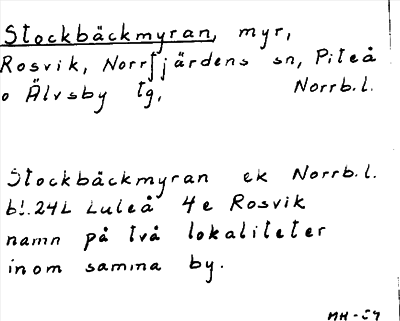 Stockbäckmyran, myr,
Rosvik, Norrfjärdens sn, Piteå
o Älvsby tg, Norrb.l.
Stockbäckmyran ek Norrb.l.
bl.24L Luleå 4e Rosvik
namn på två lokaliteter
inom samma by.